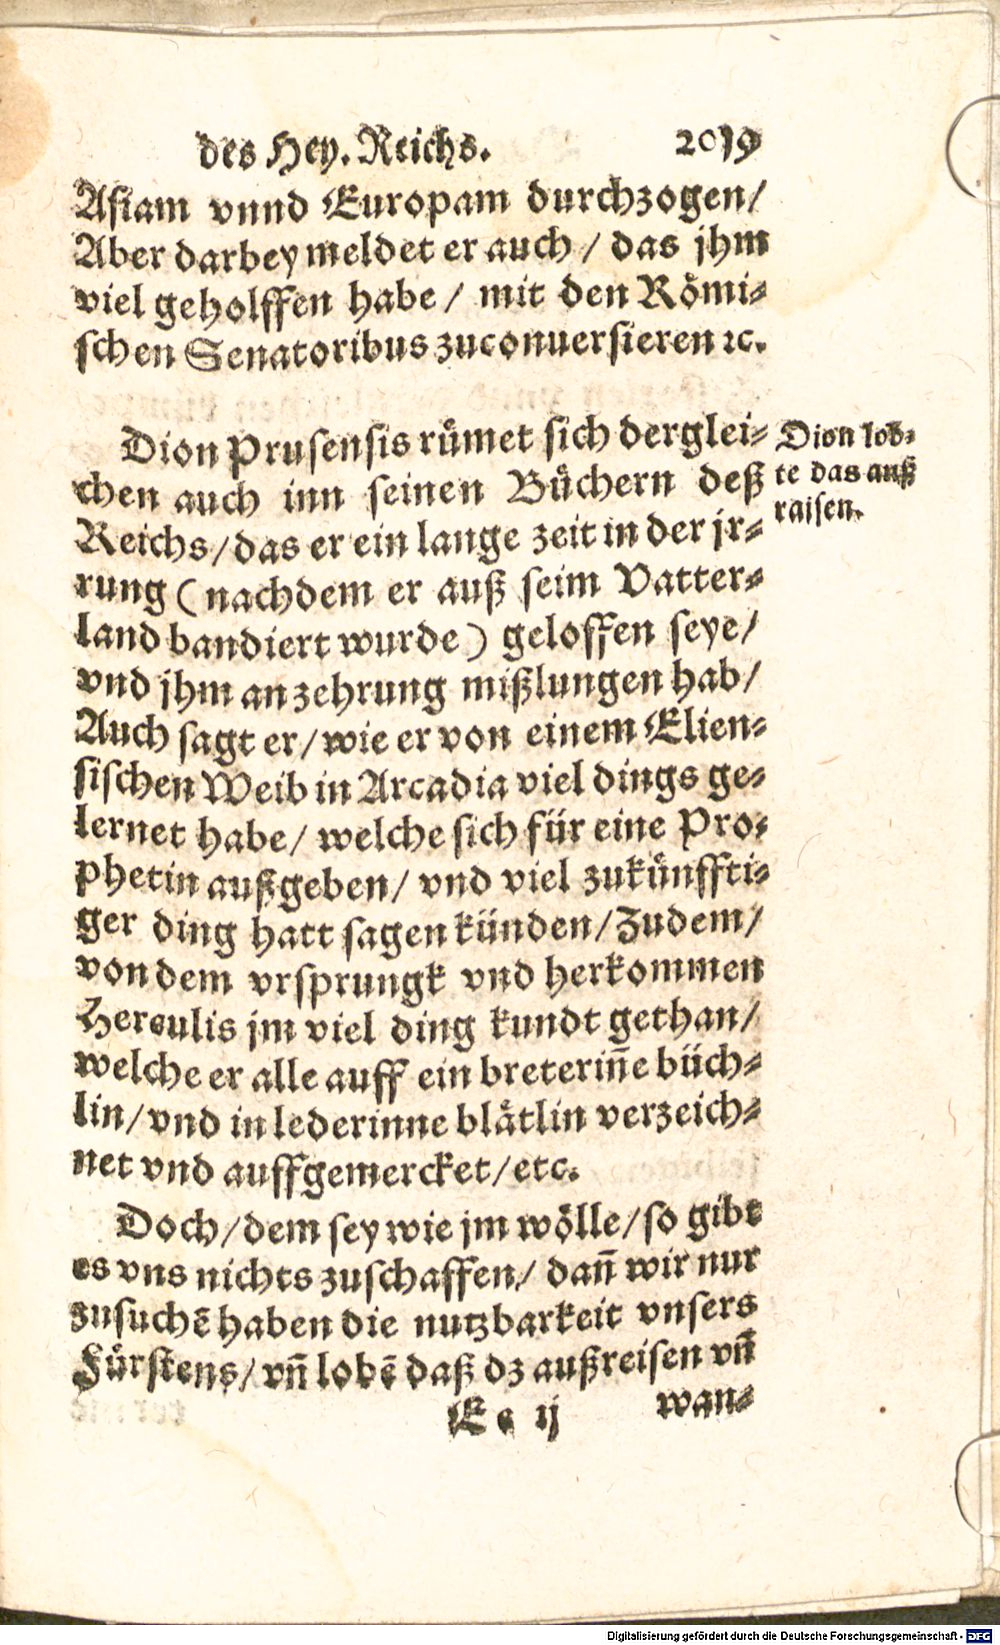 des Hey. Reichs. 2019
Asiam vnnd Europam durchzogen/
Aber darbey meldet er auch / das jhm
viel geholffen habe / mit den Roͤmi⸗
schen Senatoribus zuconuersieren ꝛc.
Dion Prusensis ruͤmet sich derglei⸗
chen auch inn seinen Buͤchern deß
Reichs/das er ein lange zeit in der jr⸗
rung (nachdem er auß seim Vatter⸗
land bandiert wurde) geloffen seye/
vnd jhm an zehrung mißlungen hab/
Auch sagt er/wie er von einem Elien⸗
sischen Weib in Arcadia viel dings ge⸗
lernet habe/ welche sich für eine Pro⸗
phetin außgeben/ vnd viel zukuͤnffti⸗
ger ding hatt sagen künden/Zudem/
von dem vrsprungk vnd herkommen
Herculis jm viel ding kundt gethan/
welche er alle auff ein breterin̄e büch⸗
lin/vnd in lederinne blaͤtlin verzeich⸗
net vnd auffgemercket/etc.
Doch/dem sey wie jm woͤlle/so gibt
es vns nichts zuschaffen/ dan̄ wir nur
zusuchē haben die nutzbarkeit vnsers
Fuͤrstens/vn̄ lobē daß dz außreisen vn̄
Ee ij wan⸗
Dion lob⸗
te das auß
raisen.
Digitalisierung gefördert durch die Deutsche Forschungsgemeinschaft - DFG